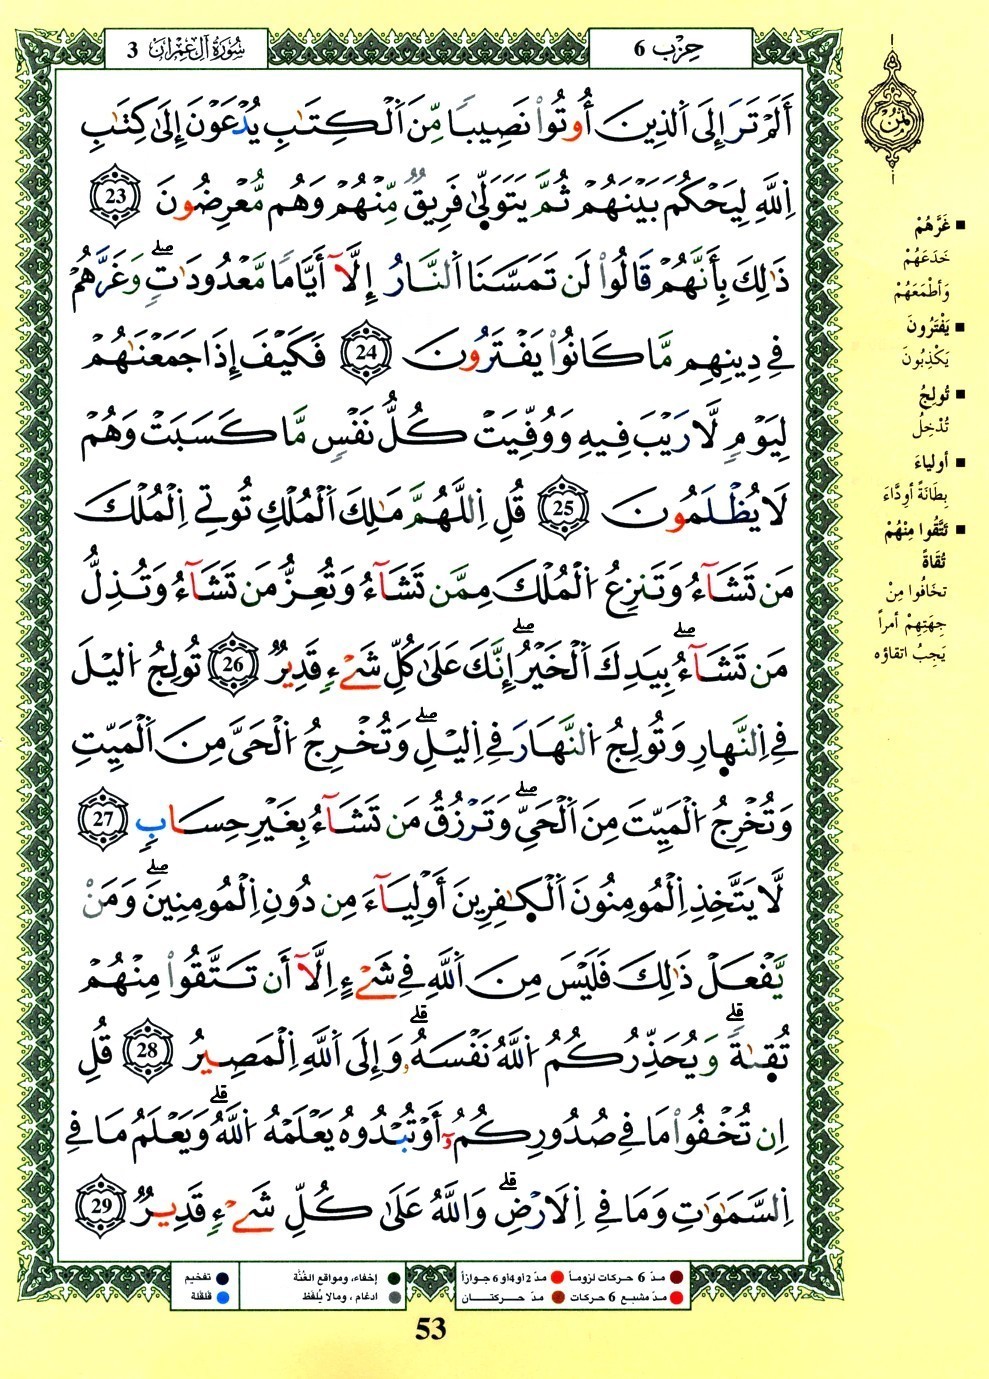 سُورَةُ آلِ عِمْرَانَ 3
حِزْب 6
ثُمُن
أَلَمْ تَرَ إِلَى اَ۬لذِينَ أُوتُواْ نَصِيباٗ مِّنَ اَ۬لْكِتَٰبِ يُدْعَوْنَ إِلَىٰ كِتَٰبِ
اِ۬للَّهِ لِيَحْكُمَ بَيْنَهُمْ ثُمَّ يَتَوَلّ۪ىٰ فَرِيقٞ مِّنْهُمْ وَهُم مُّعْرِضُونَ 23
ذَٰلِكَ بِأَنَّهُمْ قَالُواْ لَن تَمَسَّنَا اَ۬لنَّارُ إِلَّآ أَيَّاماٗ مَّعْدُودَٰتٖۖ وَغَرَّهُمْ
فِي دِينِهِم مَّا كَانُواْ يَفْتَرُونَ 24 فَكَيْفَ إِذَا جَمَعْنَٰهُمْ
لِيَوْمٖ لَّا رَيْبَ فِيهِ وَوُفِّيَتْ كُلُّ نَفْسٖ مَّا كَسَبَتْ وَهُمْ
لَا يُظْلَمُونَ 25 قُلِ اِ۬للَّهُمَّ مَٰلِكَ اَ۬لْمُلْكِ تُوتِي اِ۬لْمُلْكَ
مَن تَشَآءُ وَتَنزِعُ اُ۬لْمُلْكَ مِمَّن تَشَآءُ وَتُعِزُّ مَن تَشَآءُ وَتُذِلُّ
مَن تَشَآءُۖ بِيَدِكَ اَ۬لْخَيْرُۖ إِنَّكَ عَلَىٰ كُلِّ شَےْءٖ قَدِيرٞ 26 تُولِجُ اُ۬ليْلَ
فِي اِ۬لنَّه۪ارِ وَتُولِجُ اُ۬لنَّهَارَ فِي اِ۬ليْلِۖ وَتُخْرِجُ اُ۬لْحَيَّ مِنَ اَ۬لْمَيِّتِ
وَتُخْرِجُ اُ۬لْمَيِّتَ مِنَ اَ۬لْحَيِّۖ وَتَرْزُقُ مَن تَشَآءُ بِغَيْرِ حِسَابٖ 27
لَّا يَتَّخِذِ اِ۬لْمُومِنُونَ اَ۬لْكٰ۪فِرِينَ أَوْلِيَآءَ مِن دُونِ اِ۬لْمُومِنِينَۖ وَمَنْ
يَّفْعَلْ ذَٰلِكَ فَلَيْسَ مِنَ اَ۬للَّهِ فِي شَےْءٍ اِلَّآ أَن تَتَّقُواْ مِنْهُمْ
تُق۪ىٰةٗۗ وَيُحَذِّرُكُمُ اُ۬للَّهُ نَفْسَهُۥۗ وَإِلَى اَ۬للَّهِ اِ۬لْمَصِيرُ 28 قُلِ
اِن تُخْفُواْ مَا فِي صُدُورِكُمُۥٓ أَوْ تُبْدُوهُ يَعْلَمْهُ اُ۬للَّهُۗ وَيَعْلَمُ مَا فِي
اِ۬لسَّمَٰوَٰتِ وَمَا فِي اِ۬لَارْضِۗ وَاللَّهُ عَلَىٰ كُلِّ شَےْءٖ قَدِيرٞ 29
■ غَرَّهُمْ
خَدَعَهُمْ
وَأطْمَعَهُمْ
■ يَفْتَرُونَ
يَكْذِبُونَ
■ تُولِجُ
تُدْخِلُ
■ أولياءَ
بِطَانَةً أوِدَّاءَ
■ تَتَّقُوا مِنْهُمْ
تُقَاةً
تخَافُوا مِنْ
جِهَتِهِمْ أمراً
يَجِبُ اتقاؤه
مدّ 6 حركات لزوماً
مدّ 2 أو 4 أو 6 جوازاً
مدّ مشبع 6 حركات
مدّ حركتان
إخفاء، ومواقع الغُنَّة
ادغام، ومالا يُلفَظ
تفخيم
قلقلة
53